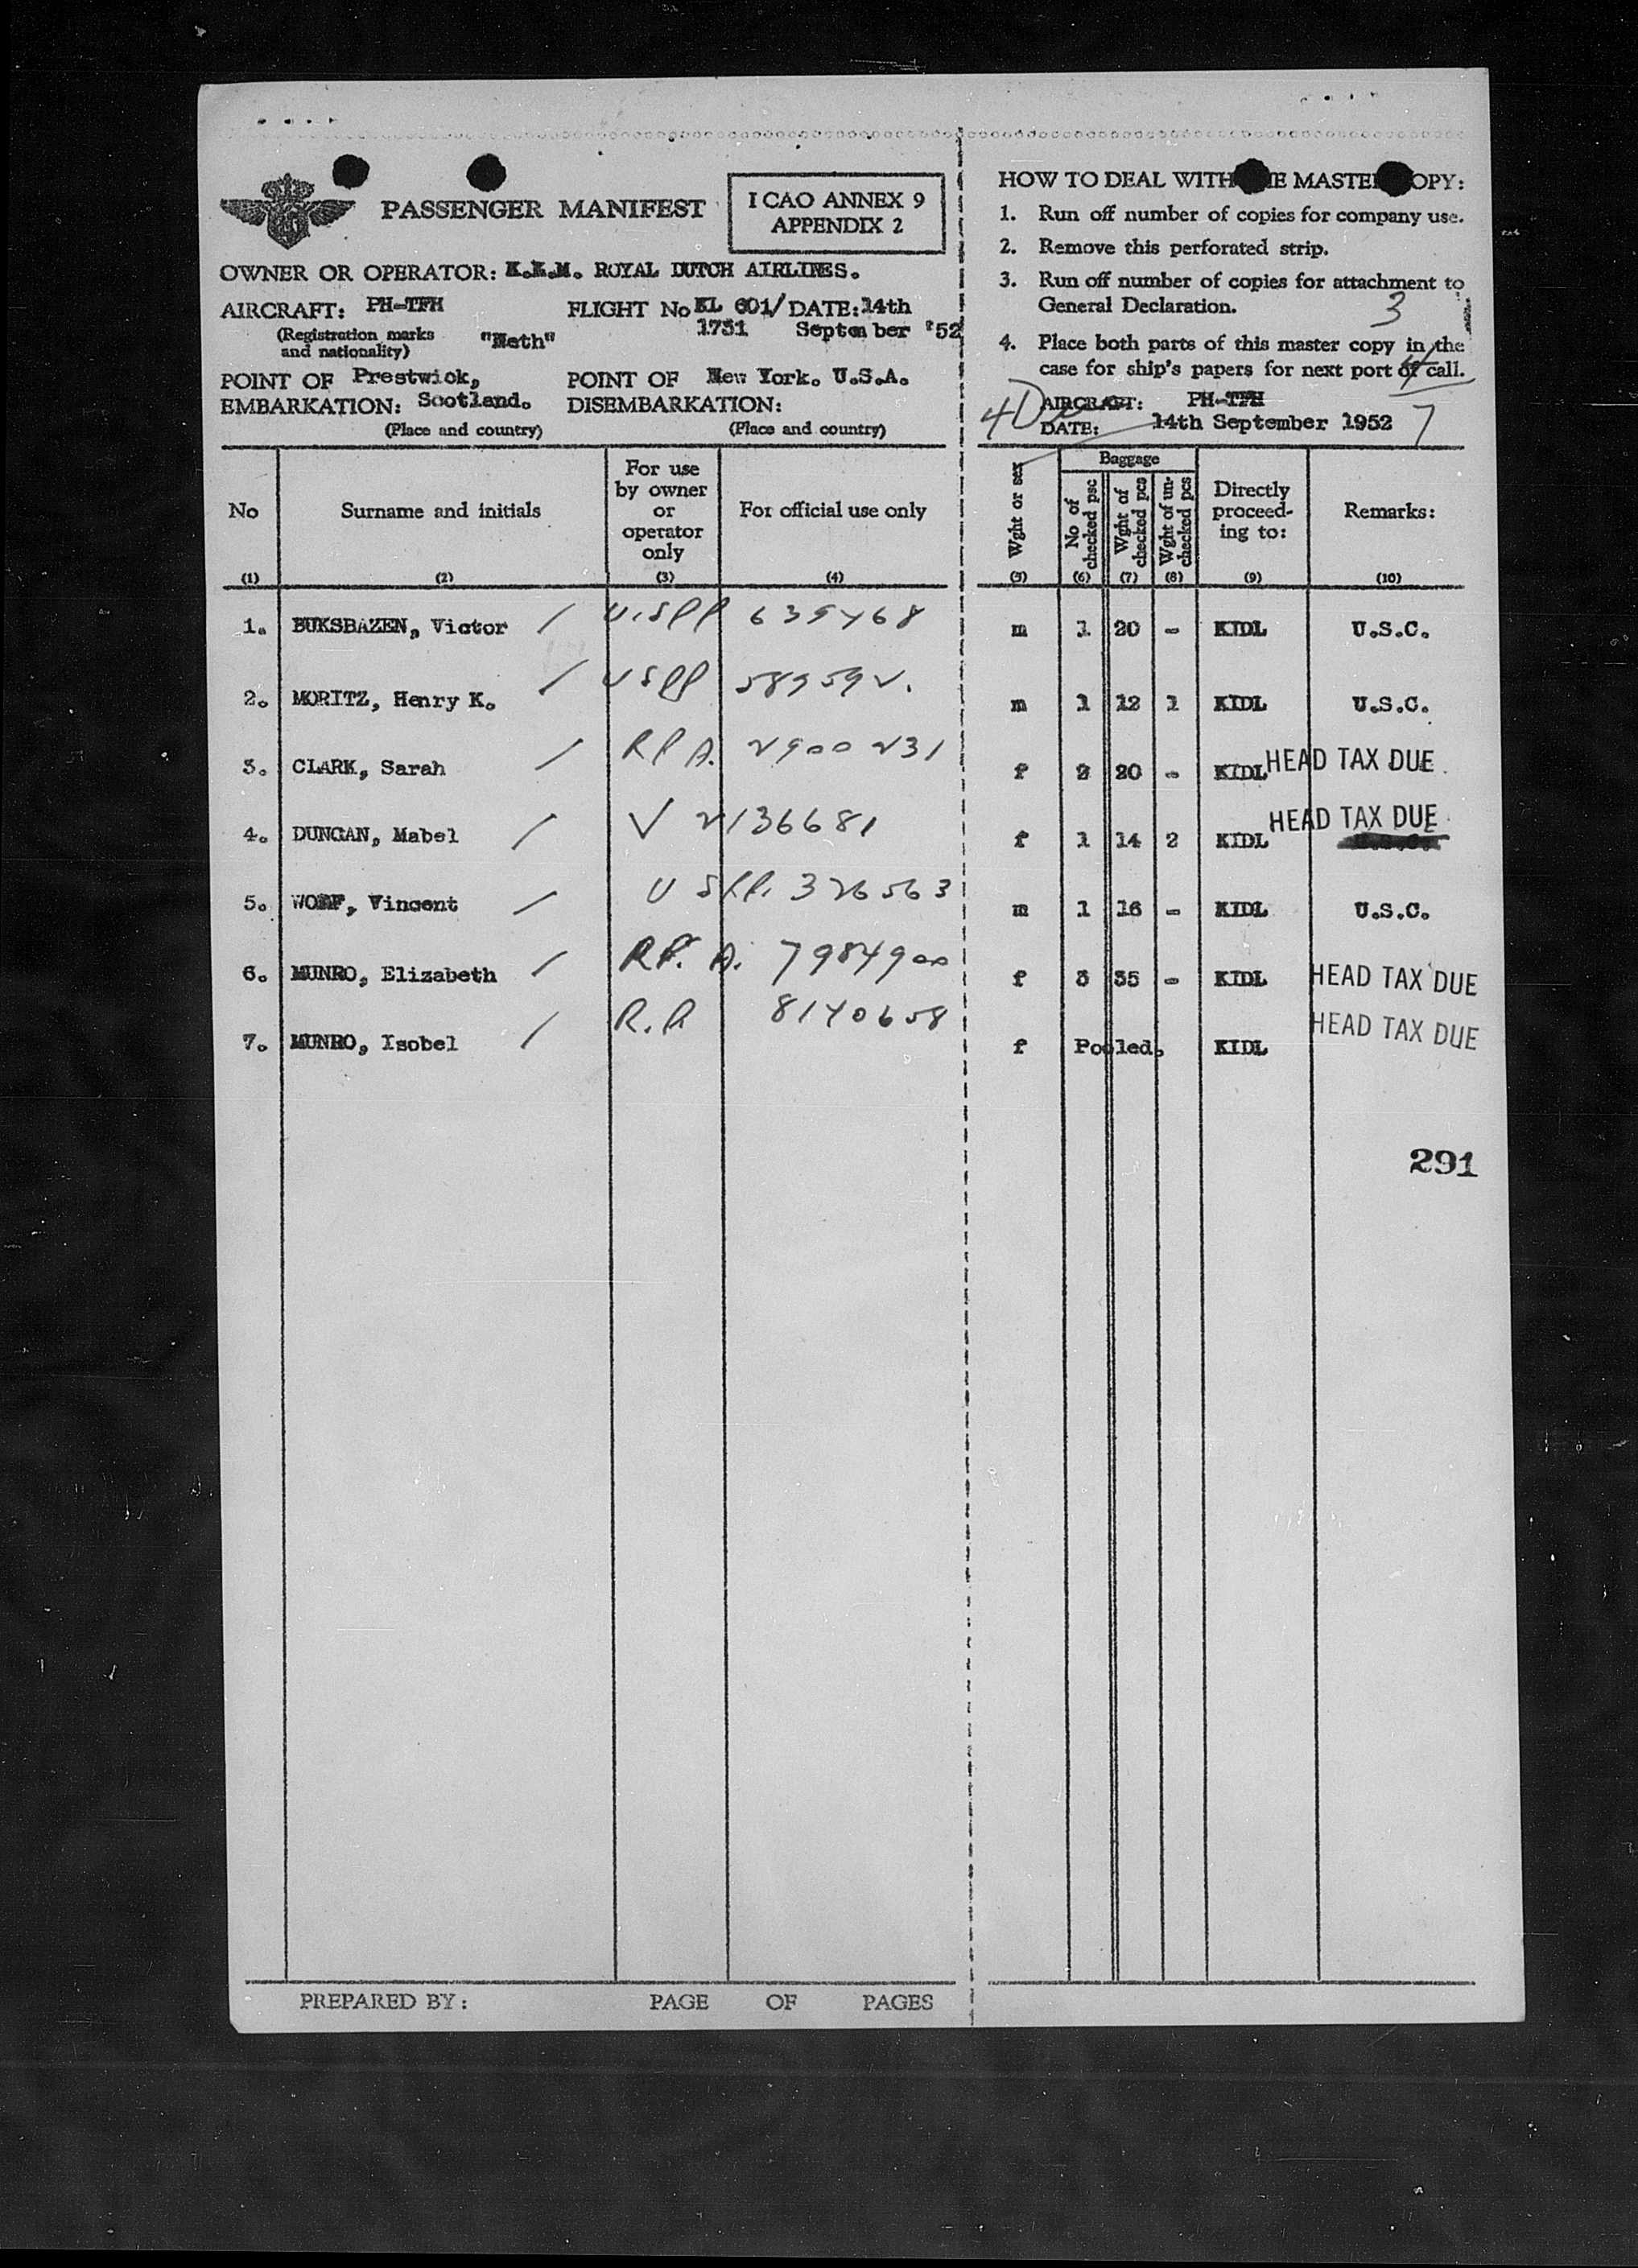 PASSENGER MANIFEST
I CAO ANNEX 9
APPENDIX 2
OWNER OR OPERATOR: K.L.M. ROYAL DUTCH AIRLINES.
AIRCRAFT: PH-TFH FLIGHT No KL 601/ DATE: 14th
(Registration marks and nationality) "Neth" 1731 September '52
POINT OF EMBARKATION: Prestwick, Scotland. POINT OF DISEMBARKATION: New York. U.S.A.
(Place and country) (Place and country)
HOW TO DEAL WITH MASTER COPY:
1. Run off number of copies for company use.
2. Remove this perforated strip.
3. Run off number of copies for attachment to
General Declaration. 3
4. Place both parts of this master copy in the
case for ship's papers for next port of call. 4
AIRCRAFT: PH-TFH
DATE: 14th September 1952 7
No Surname and initials For use by owner or operator only For official use only Wght or sex Baggage No of checked psc Wght of checked pcs Wght of un-checked pcs Directly proceed-ing to: Remarks:
(1) (2) (3) (4) (5) (6) (7) (8) (9) (10)
1. BUKSBAZEN, Victor / U.SPP 635468 m 1 20 - KIDL U.S.C.
2. MORITZ, Henry K. / USPP m 1 12 1 KIDL U.S.C.
3. CLARK, Sarah / f 2 20 - KIDL HEAD TAX DUE
4. DUNCAN, Mabel / V 2136681 f 1 14 2 KIDL HEAD TAX DUE
5. Vincent / 326563 m 1 16 - KIDL U.S.C.
6. MUNRO, Elizabeth / 7984900 f 3 35 - KIDL HEAD TAX DUE
7. MUNRO, Isobel / f Pooled. KIDL HEAD TAX DUE
291
PREPARED BY: PAGE OF PAGES